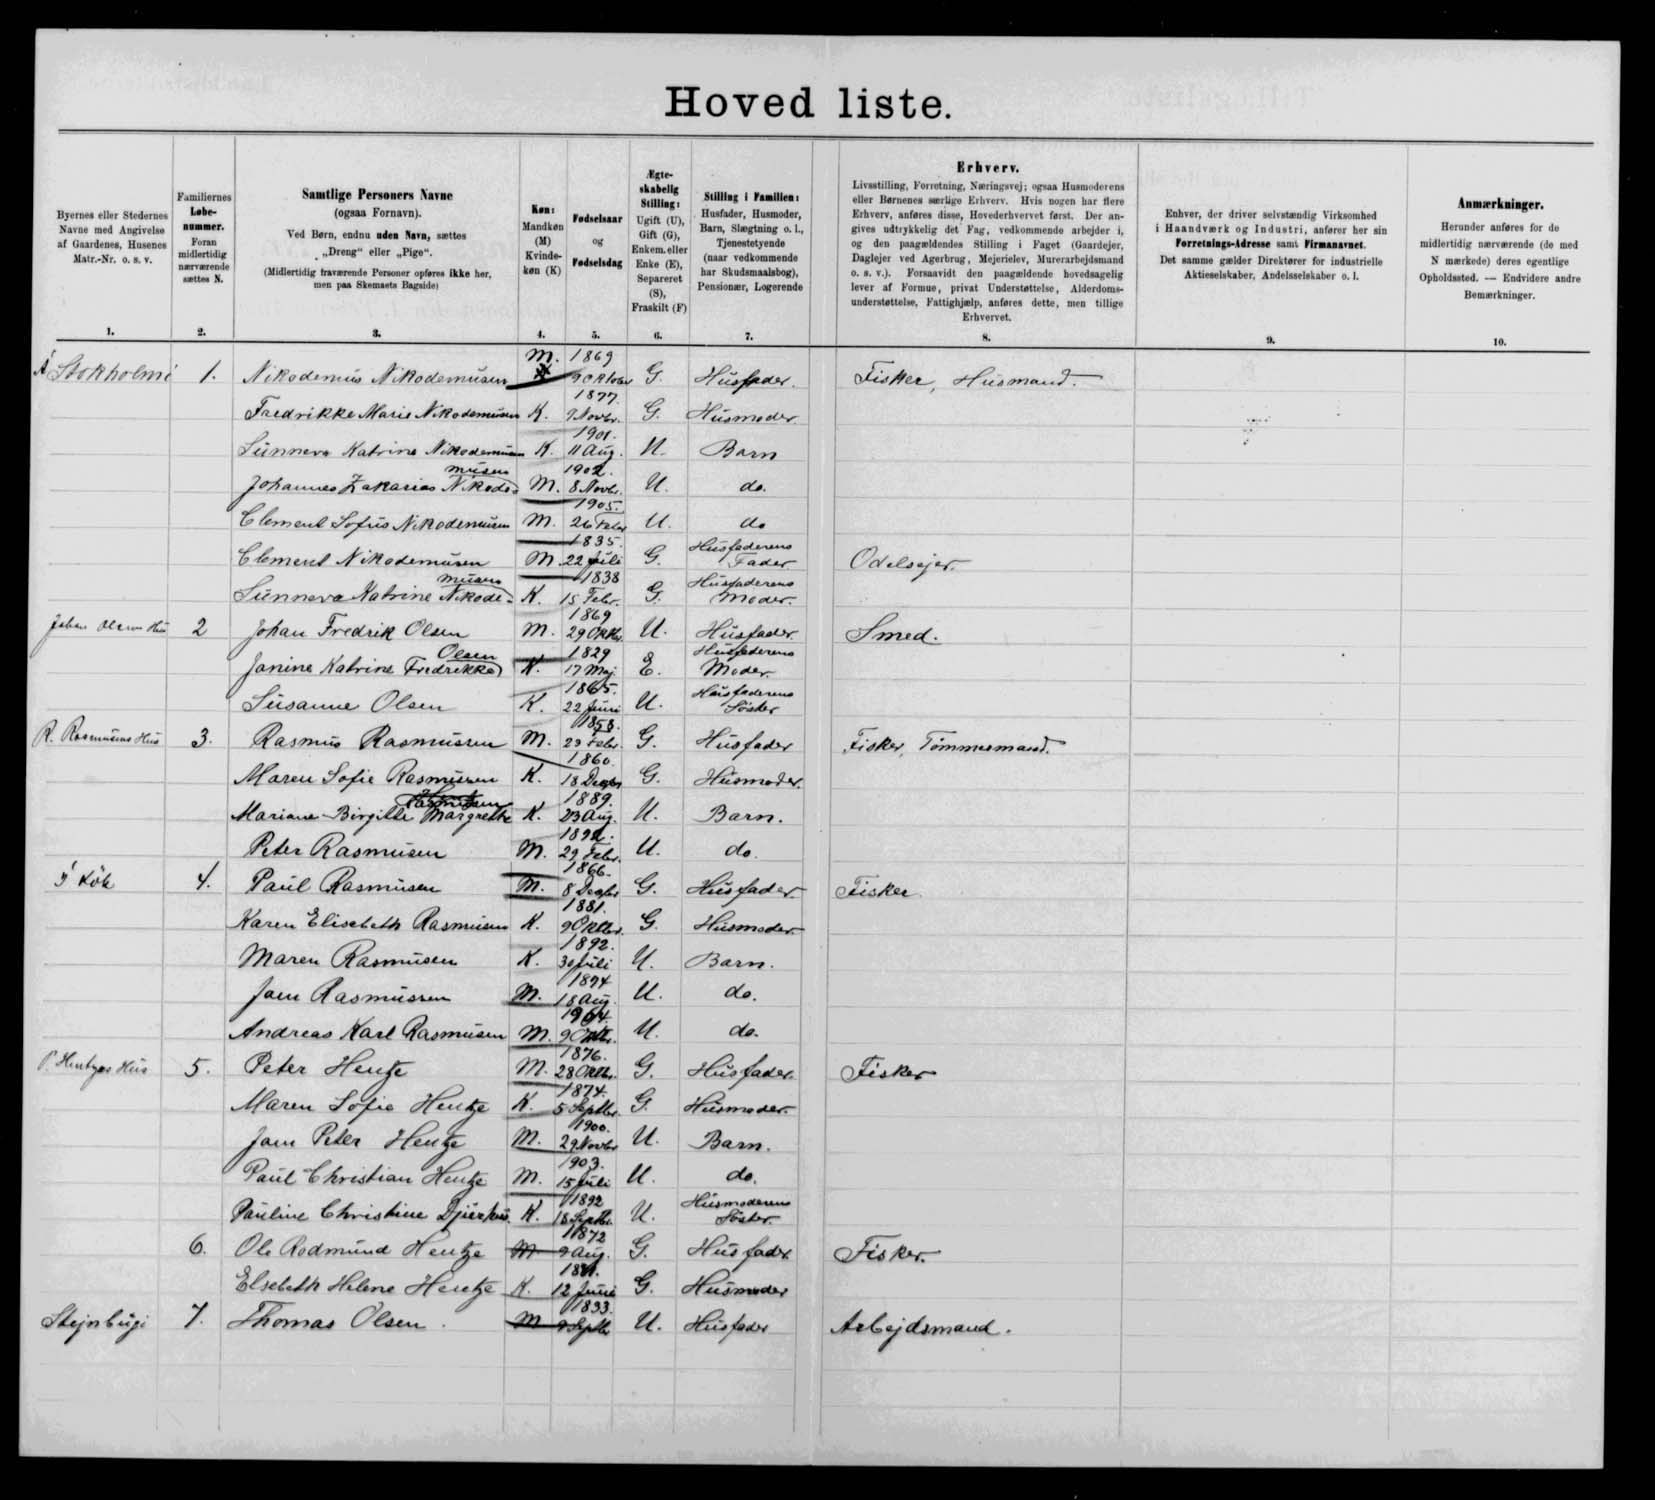 Hoved liste.
Byernes eller Stedernes Navne med Angivelse af Gaardenes, Husenes Matr.-Nr. o. s. v.
1.
Familiernes Løbe-nummer. Foran midlertidig nærværende sættes N.
2.
Samtlige Personers Navne
(ogsaa Fornavn).
Ved Børn, endnu uden Navn, sættes „Dreng“ eller „Pige“.
(Midlertidig fraværende Personer opføres ikke her, men paa Skemaets Bagside)
3.
Køn: Mandkøn (M) Kvinde-køn (K)
4.
Fødselsaar og Fødselsdag
5.
Ægte-skabelig Stilling: Ugift (U), Gift (G), Enkem. eller Enke (E), Separeret (S), Fraskilt (F)
6.
Stilling i Familien: Husfader, Husmoder, Barn, Slægtning o. l., Tjenestetyende (naar vedkommende har Skudsmaalsbog), Pensionær, Logerende
7.
Erhverv.
Livsstilling, Forretning, Næringsvej; ogsaa Husmoderens eller Børnenes særlige Erhverv. Hvis nogen har flere Erhverv, anføres disse, Hovederhvervet først. Der angives udtrykkelig det Fag, vedkommende arbejder i, og den paagældendes Stilling i Faget (Gaardejer, Daglejer ved Agerbrug, Mejerielev, Murerarbejdsmand o. s. v.). Forsaavidt den paagældende hovedsagelig lever af Formue, privat Understøttelse, Alderdoms-understøttelse, Fattighjælp, anføres dette, men tillige Erhvervet.
8.
Enhver, der driver selvstændig Virksomhed i Haandværk og Industri, anfører her sin Forretnings-Adresse samt Firmanavnet. Det samme gælder Direktører for industrielle Aktieselskaber, Andelsselskaber o. l.
9.
Anmærkninger.
Herunder anføres for de midlertidig nærværende (de med N mærkede) deres egentlige Opholdssted. — Endvidere andre Bemærkninger.
10.
Á Stokholmi 1. Nikodemus Nikodemusen M. 1869 9 Oktober G. Husfader. Fisker, Husmand.
Fredrikke Marie Nikodemusen K. 1877. 9 Novbr. G. Husmoder.
Sunneva Katrine Nikodemusen K. 1901. 11 Aug. U. Barn
Johannes Zakarias Nikodemusen M. 1902. 8 Novbr. U. do.
Clement Sofus Nikodemusen M. 1905. 26 Febr U. do
Clement Nikodemusen M. 1835. 22 Juli G. Husfaderens Fader. Odelsejer.
Sunneva Katrine Nikodemusen K. 1838 15 Febr. G. Husfaderens Moder.
Johan Olsens Hus 2 Johan Fredrik Olsen M. 1869 29 Oktbr. U. Husfader. Smed.
Janine Katrine Fredrikke Olsen K. 1829 17 Maj E. Husfaderens Moder.
Susanne Olsen K. 1865. 22 Juni U. Husfaderens Söster
R. Rasmusens Hus 3. Rasmus Rasmussen M. 1858. 23 Febr. G. Husfader Fisker, Tömmermand.
Maren Sofie Rasmussen K. 1860. 18 Decbr G. Husmoder.
Mariane Birgitte Margrethe K. 1889. 23 Aug. U. Barn.
Peter Rasmusen M. 1892. 29 Febr. U. do.
Í Kök 4. Paul Rasmusen M. 1866. 8 Decbr G. Husfader. Fisker
Karen Elisebeth Rasmusen K. 1881. 9 Oktbr. G. Husmoder.
Maren Rasmusen K. 1892. 30 Juli U. Barn.
Joen Rasmussen M. 1894 18 Aug. U. do.
Andreas Karl Rasmusen M. 1904. 9 Oktbr. U. do.
P. Hentzes Hus 5. Peter Hentze M. 1876. 28 Oktbr. G. Husfader. Fisker
Maren Sofie Hentze K. 1874. 5 Septbr. G. Husmoder.
Joen Peter Hentze M. 1900. 29 Novbr U. Barn.
Paul Christian Hentze M. 1903. 15 Juli U. do.
Pauline Christine K. 1892 18 Septbr. U. Husmoderens Söster.
6. Ole Rodmund Hentze M 1872 9 Aug. G. Husfader Fisker.
Elsebeth Helene Hentze K. 12 Juni G. Husmoder
Stejnbugi 7. Thomas Olsen. M 1833. 9 Septbr U. Husfader Arbejdsmand.